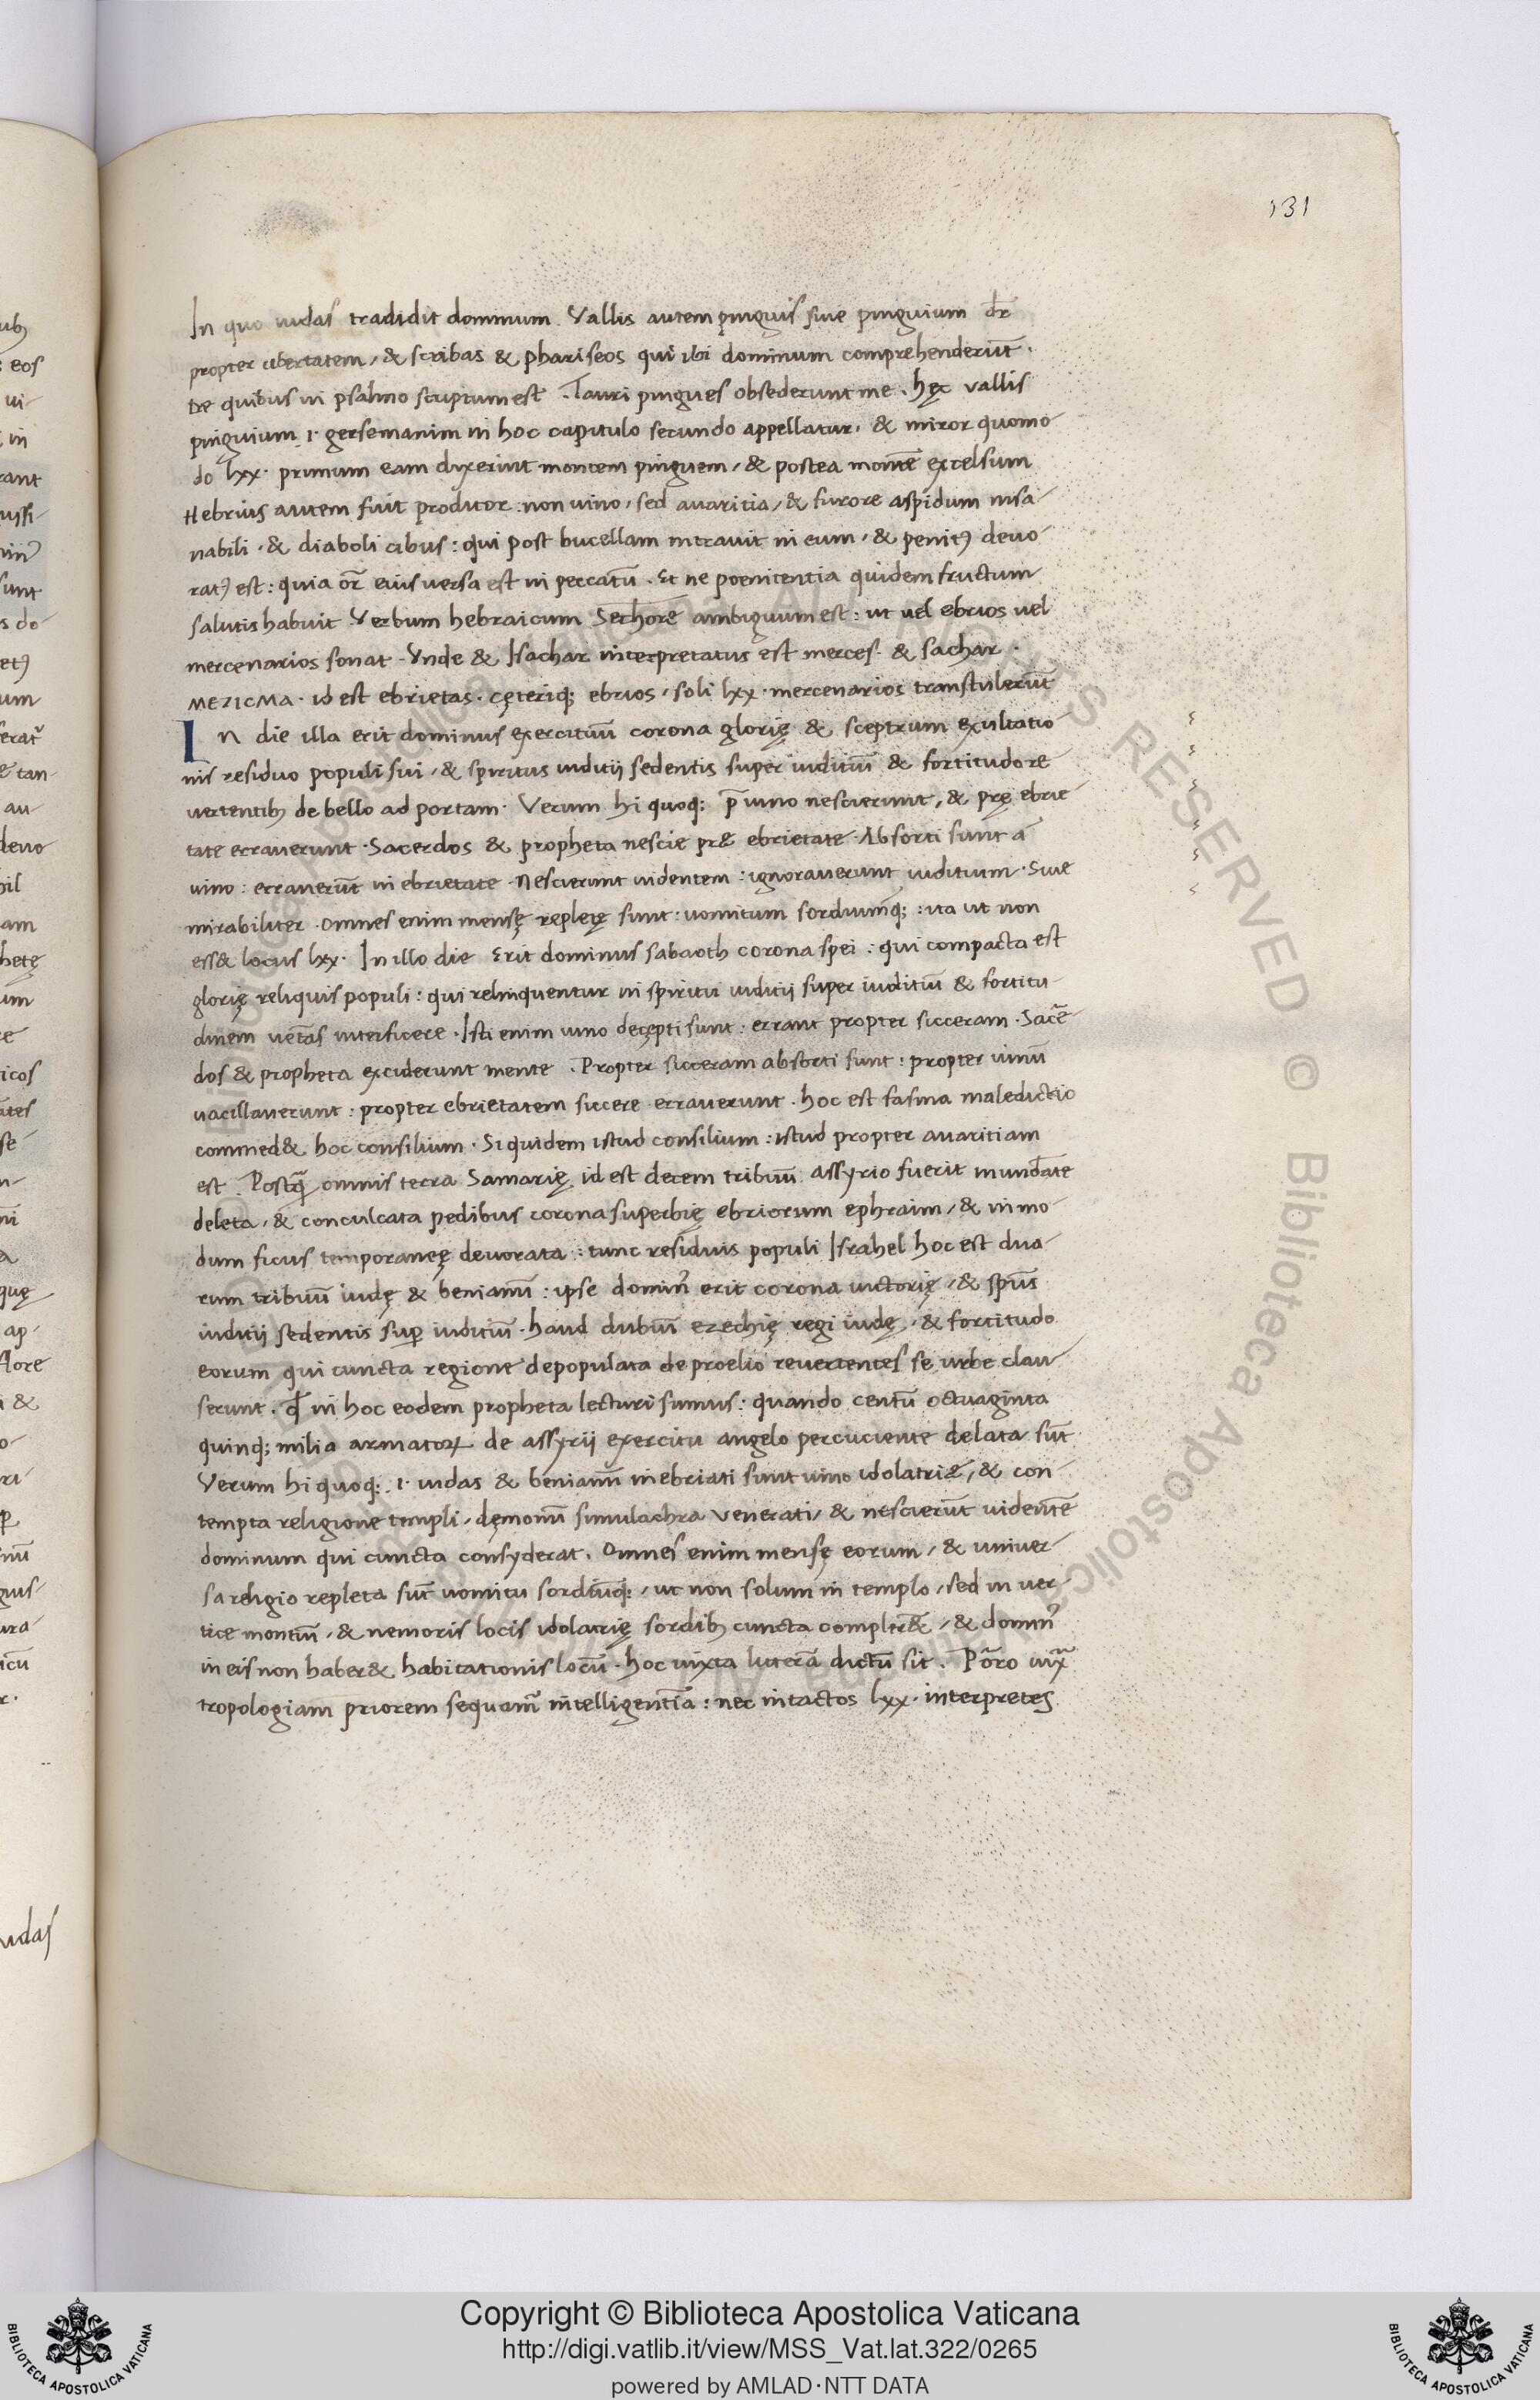 131
In quo iudas tradidit dominum. Vallis autem pinguis siue pinguium dr̄
propter ubertatem, & scribas & phariseos qui ibi dominum comprehenderūt.
De quibus in psalmo scriptum est. Tauri pingues obsederunt me. hęc vallis
pinguium .i. gersemanim in hoc capitulo secundo appellatur, & miror quomo
do lxx. primum eam dixerint montem pinguem, & postea montē excelsum
Hebrius autem fuit proditor: non uino, sed auaritia, & furore aspidum insa
nabili, & diaboli cibus: qui post bucellam intrauit in eum, & penitꝰ deuo
ratꝰ est: quia or̄ eius versa est in peccatū. Et ne poenitentia quidem fructum
salutis habuit Verbum hebraicum Sechore ambiguum est: ut uel ebrios uel
mercenarios sonat. Vnde & Isachar interpretatus est merces & sachar.
MEZICMA. id est ebrietas. cęteriq; ebrios, soli lxx. mercenarios transtulerūt
In die illa erit dominus exercituū corona glorię & sceptrum exultatio
nis residuo populi sui, & spiritus iuditij sedentis super iuditiū & fortitudo re
uertentibꝫ de bello ad portam. Verum hi quoq; p̄ uino nescierunt, & prę ebrie
tate erraverunt. Sacerdos & propheta nescie prę ebrietate. Absorti sunt a
uino: erraverūt in ebrietate. Nescierunt uidentem: ignoraverunt iuditium. Siue
mirabiliter. Omnes enim mensę repletę sunt: uomitum sordiumq;: ita ut non
ess& locus lxx. In illo die Erit dominus sabaoth corona spei: qui compacta est
glorię reliquis populi: qui relinquentur in spiritu iuditij super iuditiū & fortitu
dinem uetās interficere. Isti enim uino decepti sunt: errant propter sicceram. Sacē
dos & propheta exciderunt mente. Propter sicceram absorti sunt: propter uinū
vacillaverunt: propter ebrietatem siccere erraverunt. hoc est fasma maledictio
commed& hoc consilium. Siquidem istud consilium: istud propter auaritiam
est. Postq̄ omnis terra Samarię id est decem tribuū assyrio fuerit inundāte
deleta, & conculcata pedibus corona superbię ebriorum ephraim, & in mo
dum ficus temporaneę deuorata: tunc residuis populi Israhel hoc est dua
rum tribuū iudę & beniamī: ipse dominꝰ erit corona uictorię, & sp̄us
iuditij sedentis sup̄ iuditiū. haud dubiū ezechię regi iudę, & fortitudo
eorum qui cuncta regione depopulata de proelio reuertentes se urbe clau
serunt. qđ in hoc eodem propheta lecturi sumus: quando centū octuaginta
quinq; milia armatoꝝ de assyrij exercitu angelo percuciente delata sūt
Verum hi quoq; .i. iudas & beniamī inebriati sunt uino idolatrię, & con
tempta religione templi, dęmonū simulachra venerati, & nescierūt uidentē
dominum qui cuncta consyderat. Omnes enim mensę eorum, & univer
sa religio repleta sūt uomitu sordiūq;, ut non solum in templo, sed in ver
tice montiū, & nemoris locis idolatrię sordibꝫ cuncta compler&, & dominꝰ
in eis non haber& habitationis locū. hoc iuxta litterā dictū sit. Pōro iuxͣ
tropologiam priorem sequam̄ intelligentiā: nec intactos lxx. interpretes
Copyright © Biblioteca Apostolica Vaticana
http://digi.vatlib.it/view/MSS_Vat.lat.322/0265
powered by AMLAD·NTT DATA